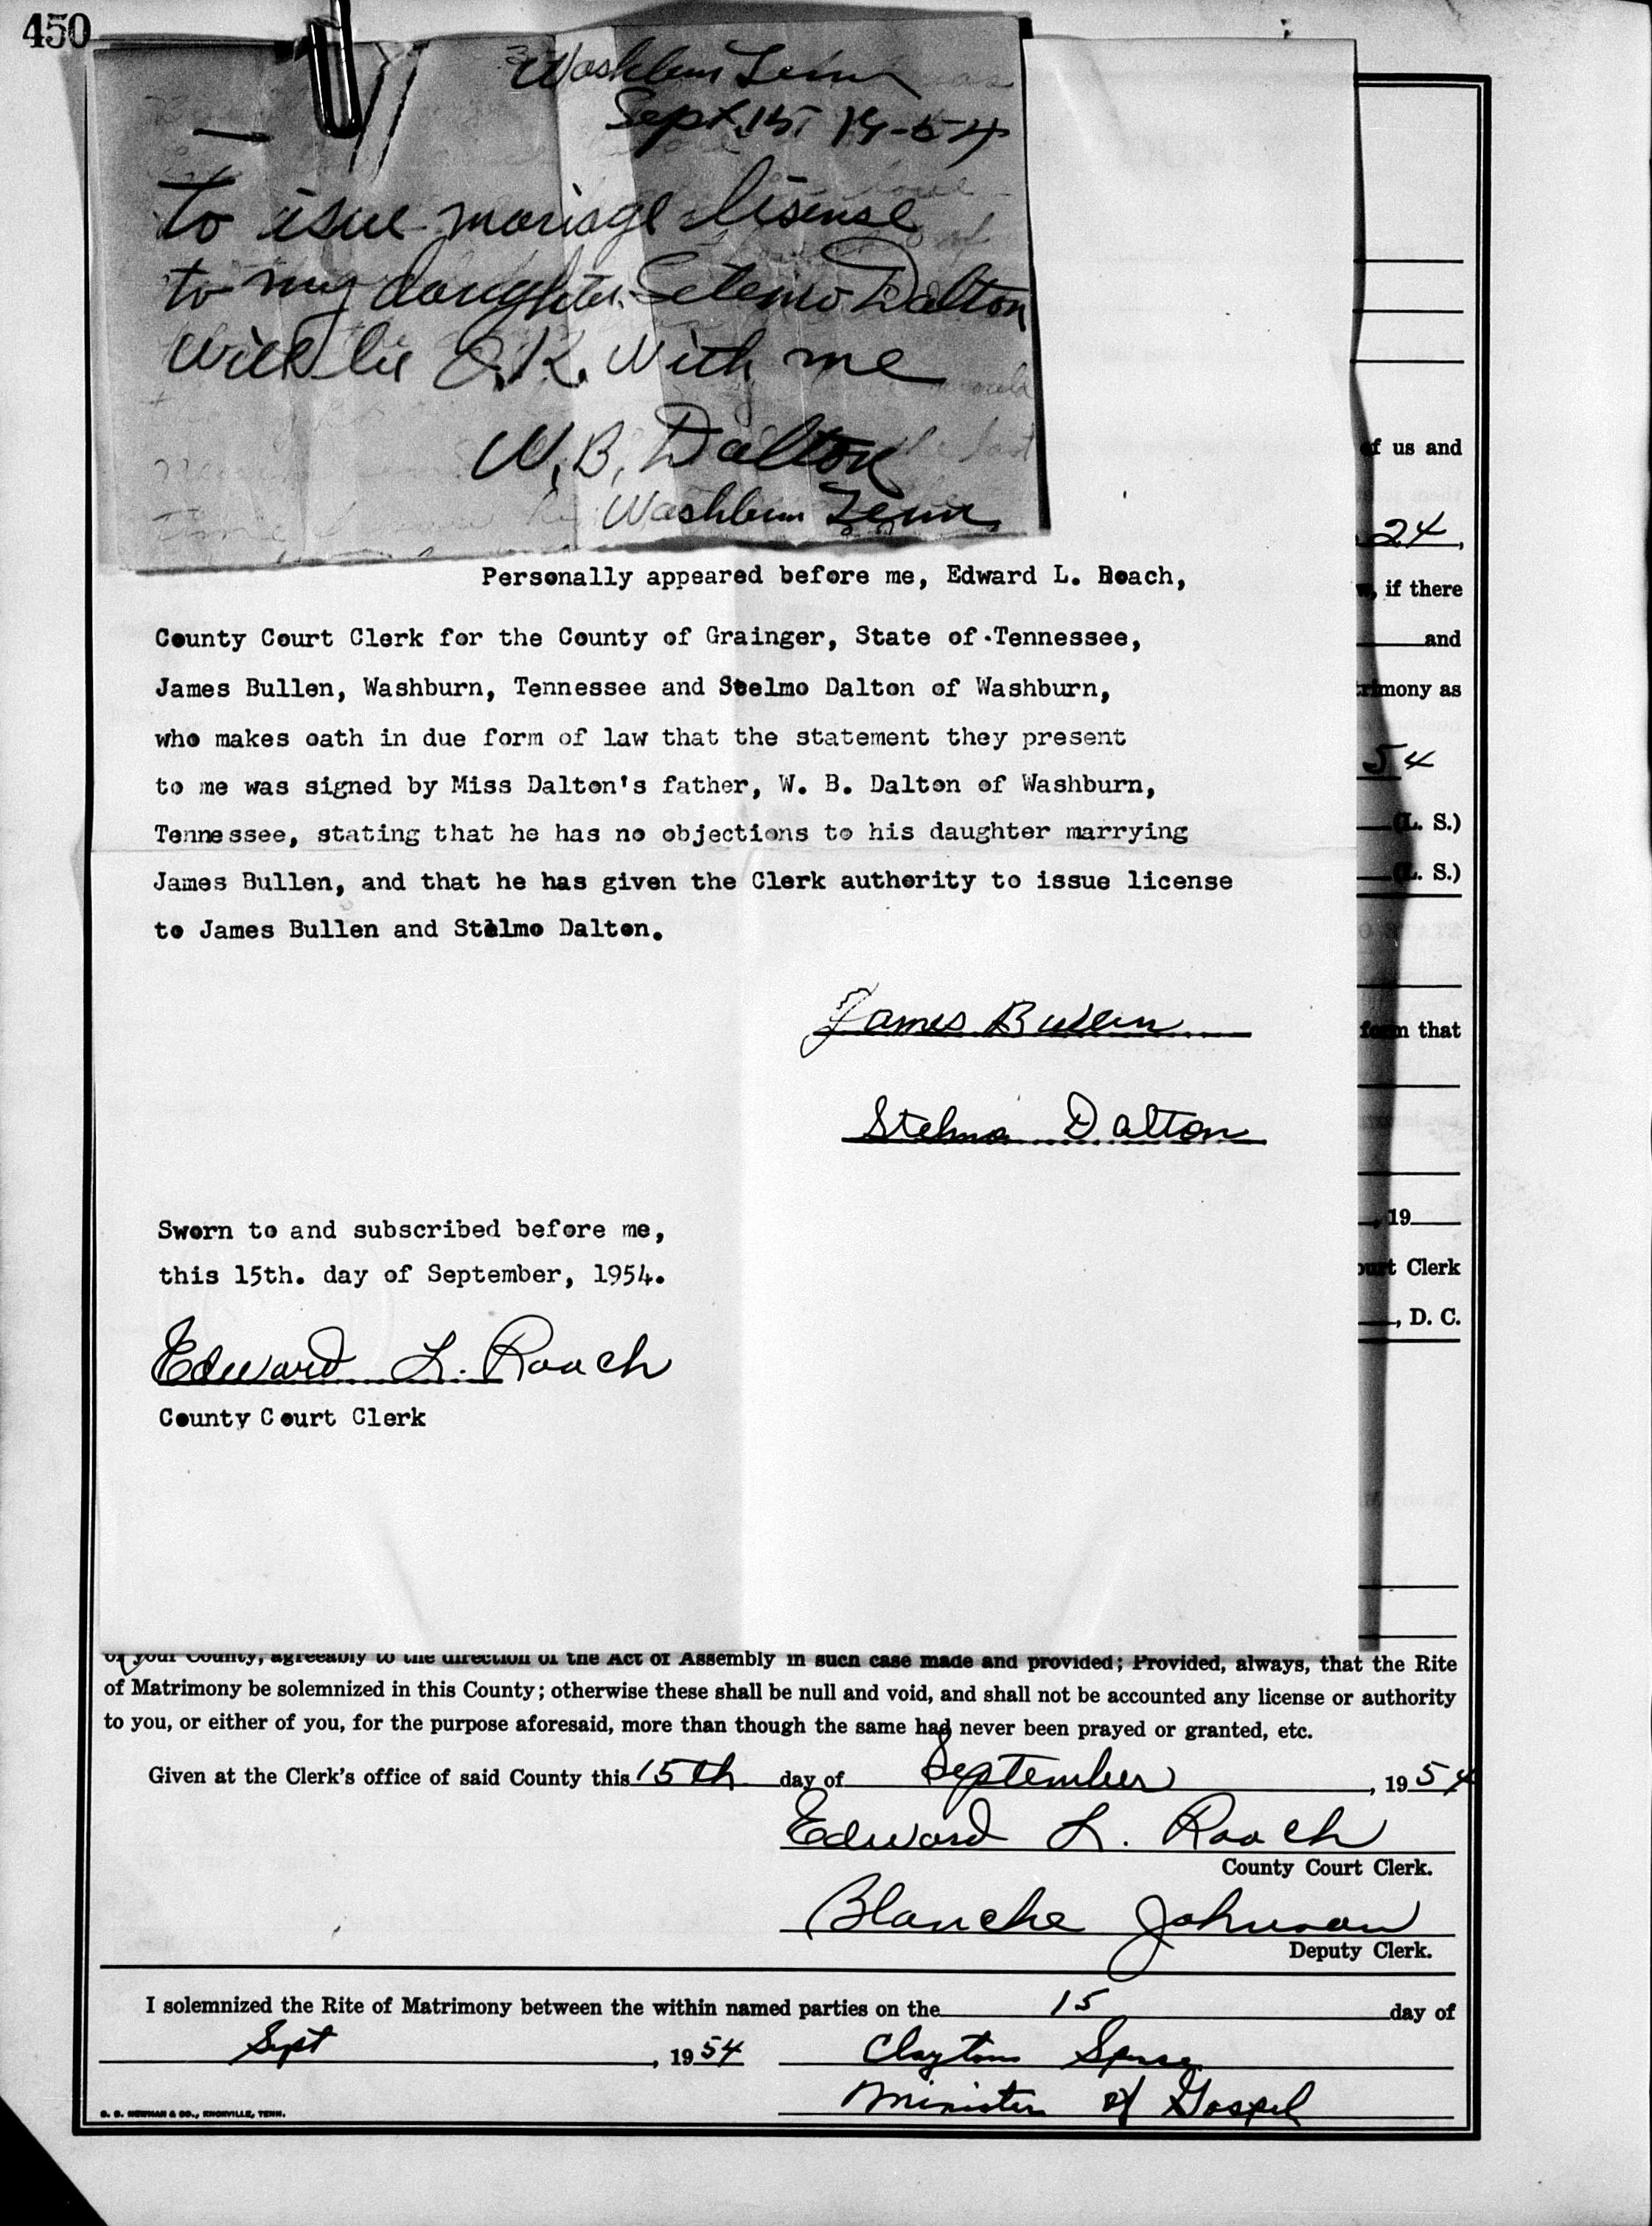 450
Washburn Tenn
Sept 15 19-54
to isue mariage lisense
to my daughter Stelmo Dalton
will be O.K. With me
W. B. Dalton
Washburn Tenn
Personally appeared before me, Edward L. Roach,
County Court Clerk for the County of Grainger, State of Tennessee,
James Bullen, Washburn, Tennessee and Stelmo Dalton of Washburn,
who makes oath in due form of law that the statement they present
to me was signed by Miss Dalton's father, W. B. Dalton of Washburn,
Tennessee, stating that he has no objections to his daughter marrying
James Bullen, and that he has given the Clerk authority to issue license
to James Bullen and Stelmo Dalton.
James Bullen
Stelmo Dalton
Sworn to and subscribed before me,
this 15th. day of September, 1954.
Edward L. Roach
County Court Clerk
of us and
24,
, if there
and
rimony as
54
(L. S.)
(L. S.)
form that
, 19
ourt Clerk
, D. C.
of your County, agreeably to the direction of the Act of Assembly in such case made and provided; Provided, always, that the Rite
of Matrimony be solemnized in this County; otherwise these shall be null and void, and shall not be accounted any license or authority
to you, or either of you, for the purpose aforesaid, more than though the same had never been prayed or granted, etc.
Given at the Clerk's office of said County this 15th day of September, 1954
Edward L. Roach
County Court Clerk.
Blanche Johnson
Deputy Clerk.
I solemnized the Rite of Matrimony between the within named parties on the 15 day of
Sept, 1954 Clayton
Minister of Gospel
NEWMAN & CO., KNOXVILLE, TENN.